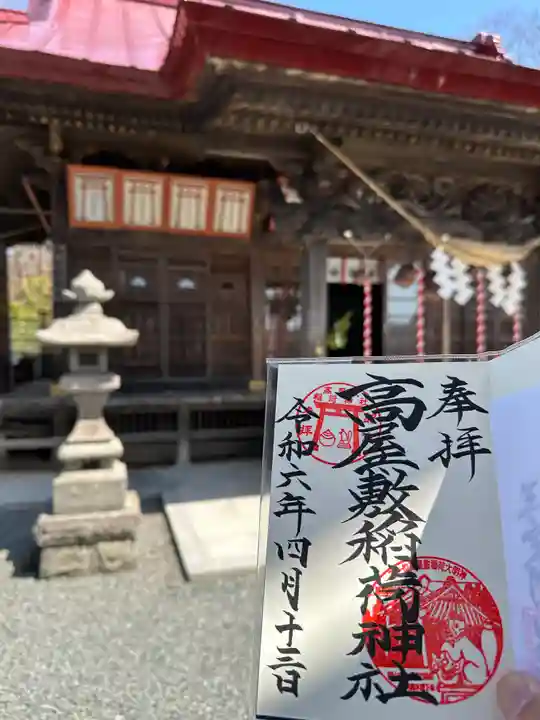 奉拝
高屋敷稲荷神社
令和六年四月十三日